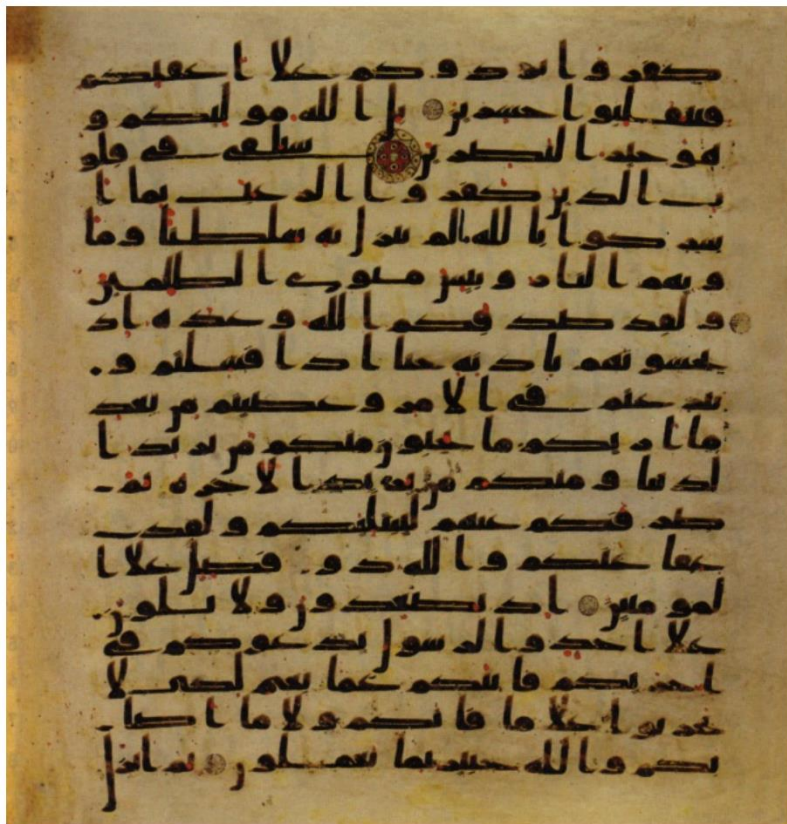 كفروا يردوكم علا اعقبكم
فتنقلبوا خسرين بل الله موليكم و
هو خير النصرين سنلقى فى قلو
ب الذين كفروا الرعب بما ا
شركوا بالله ما لم ينزل به سلطنا وما
ويهم النار وبيس مثوى الظلمين
ولقد صدقكم الله وعده اذ
تحسونهم باذنه حتا اذا فشلتم و
تنزعتم فى الامر وعصيتم من بعد
ما اريكم ما تحبون منكم من يريد ا
لدنيا ومنكم من يريد الاخرة ثم
صرفكم عنهم ليبتليكم ولقد
عفا عنكم والله ذو فضل علا ا
لمومنين اذ تصعدون ولا تلون
علا احد والرسول يدعوكم فى
اخريكم فاثبكم غما بغم لكى لا
تحزنوا علا ما فاتكم ولا ما اصا
بكم والله خبير بما تعملون ثم انزل